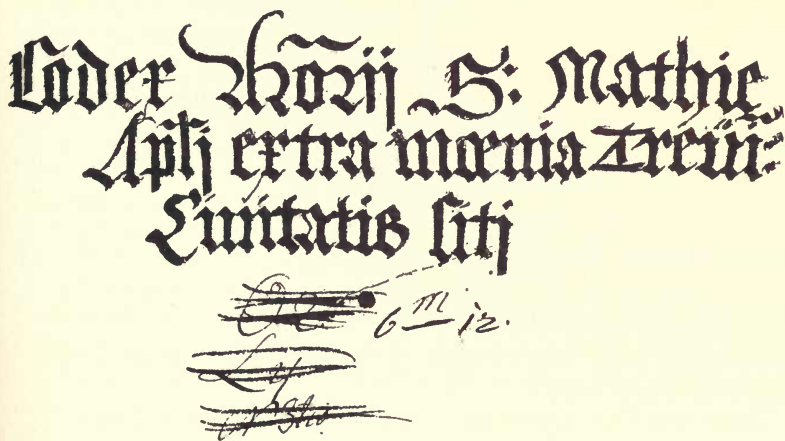 Codex Mõrij S: Mathie
Aplj extra mœnia Treui:
Ciuitatis sitj
6 m 12.